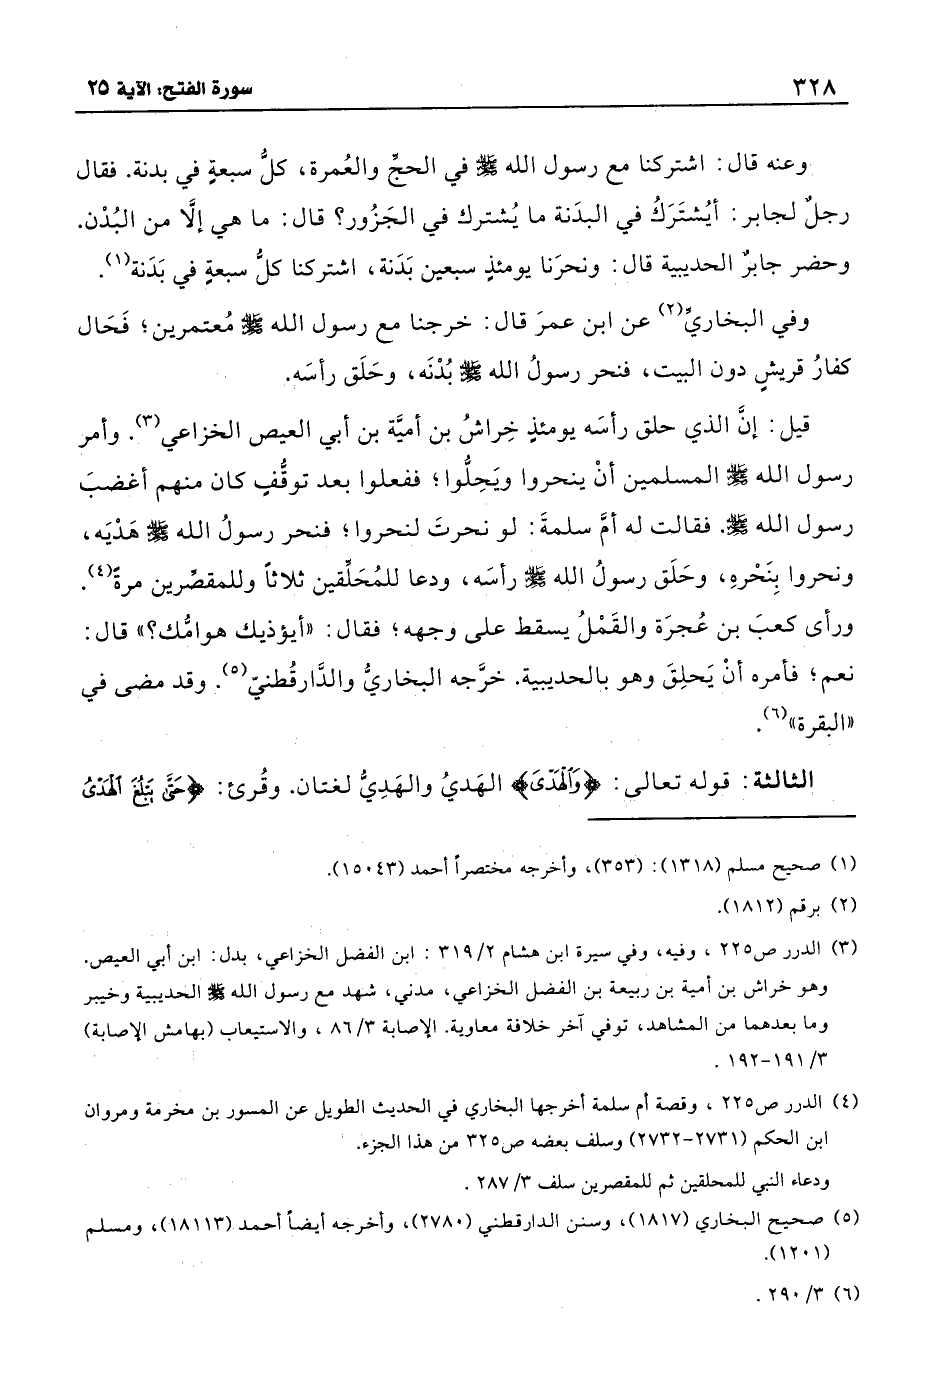 ٣٢٨
سورة الفتح: الآية ٢٥
وعنه قال: اشتركنا مع رسول الله ﷺ في الحجِّ والعُمرة، كلُّ سبعةٍ في بدنة. فقال
رجلٌ لجابر: أيُشتَرَكُ في البدَنة ما يُشترك في الجَزُور؟ قال: ما هي إلَّا من البُدْن.
وحضر جابرٌ الحديبية قال: ونحرَنا يومئذٍ سبعين بَدَنة، اشتركنا كلُّ سبعةٍ في بَدَنة(١).
وفي البخاريِّ(٢) عن ابن عمرَ قال: خرجنا مع رسول الله ﷺ مُعتمرين؛ فَحَال
كفارُ قريشٍ دون البيت، فنحر رسولُ الله ﷺ بُدْنَه، وحَلَق رأسَه.
قيل: إنَّ الذي حلق رأسَه يومئذٍ خِراشُ بن أميَّة بن أبي العيص الخزاعي(٣). وأمر
رسول الله ﷺ المسلمين أنْ ينحروا ويَحِلُّوا؛ ففعلوا بعد توقُّفٍ كان منهم أغضبَ
رسول الله ﷺ. فقالت له أمُّ سلمةَ: لو نحرتَ لنحروا؛ فنحر رسولُ الله ﷺ هَدْيَه،
ونحروا بِنَحْرهِ، وحَلَق رسولُ الله ﷺ رأسَه، ودعا للمُحَلِّقين ثلاثاً وللمقصِّرين مرةً(٤).
ورأى كعبَ بن عُجرَة والقَمْلُ يسقط على وجهه؛ فقال: «أيؤذيك هوامُّك؟» قال:
نعم؛ فأمره أنْ يَحلِقَ وهو بالحديبية. خرَّجه البخاريُّ والدَّارقُطنيّ(٥). وقد مضى في
«البقرة»(٦).
الثالثة: قوله تعالى: ﴿وَٱلْهَدْىَ﴾ الهَديُ والهَدِيُّ لغتان. وقُرئ: ﴿حَتَّى يَبْلُغَ ٱلْهَدْىُ
(١) صحيح مسلم (١٣١٨): (٣٥٣)، وأخرجه مختصراً أحمد (١٥٠٤٣).
(٢) برقم (١٨١٢).
(٣) الدرر ص٢٢٥ ، وفيه، وفي سيرة ابن هشام ٣١٩/٢ : ابن الفضل الخزاعي، بدل: ابن أبي العيص.
وهو خراش بن أمية بن ربيعة بن الفضل الخزاعي، مدني، شهد مع رسول الله ﷺ الحديبية وخيبر
وما بعدهما من المشاهد، توفي آخر خلافة معاوية. الإصابة ٨٦/٣ ، والاستيعاب (بهامش الإصابة)
٣/ ١٩١-١٩٢ .
(٤) الدرر ص٢٢٥ ، وقصة أم سلمة أخرجها البخاري في الحديث الطويل عن المسور بن مخرمة ومروان
ابن الحكم (٢٧٣١-٢٧٣٢) وسلف بعضه ص٣٢٥ من هذا الجزء.
ودعاء النبي للمحلقين ثم للمقصرين سلف ٣/ ٢٨٧ .
(٥) صحيح البخاري (١٨١٧)، وسنن الدارقطني (٢٧٨٠)، وأخرجه أيضاً أحمد (١٨١١٣)، ومسلم
(١٢٠١).
(٦) ٣/ ٢٩٠ .